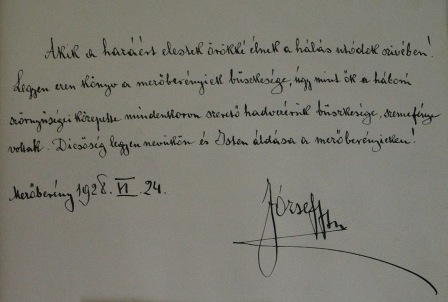 Akik a hazáért elestek örökké élnek a hálás utódok szívében!
Legyen ezen könyv a mezőberényiek büszkesége, úgy mint ők a háború
szörnyűségei közepette mindenkoron szerető hadvezérük büszkesége, szemefénye
voltak. Dicsőség legyen nevükön és Isten áldása a mezőberényieken!
Mezőberény 1928. VI. 24.
József